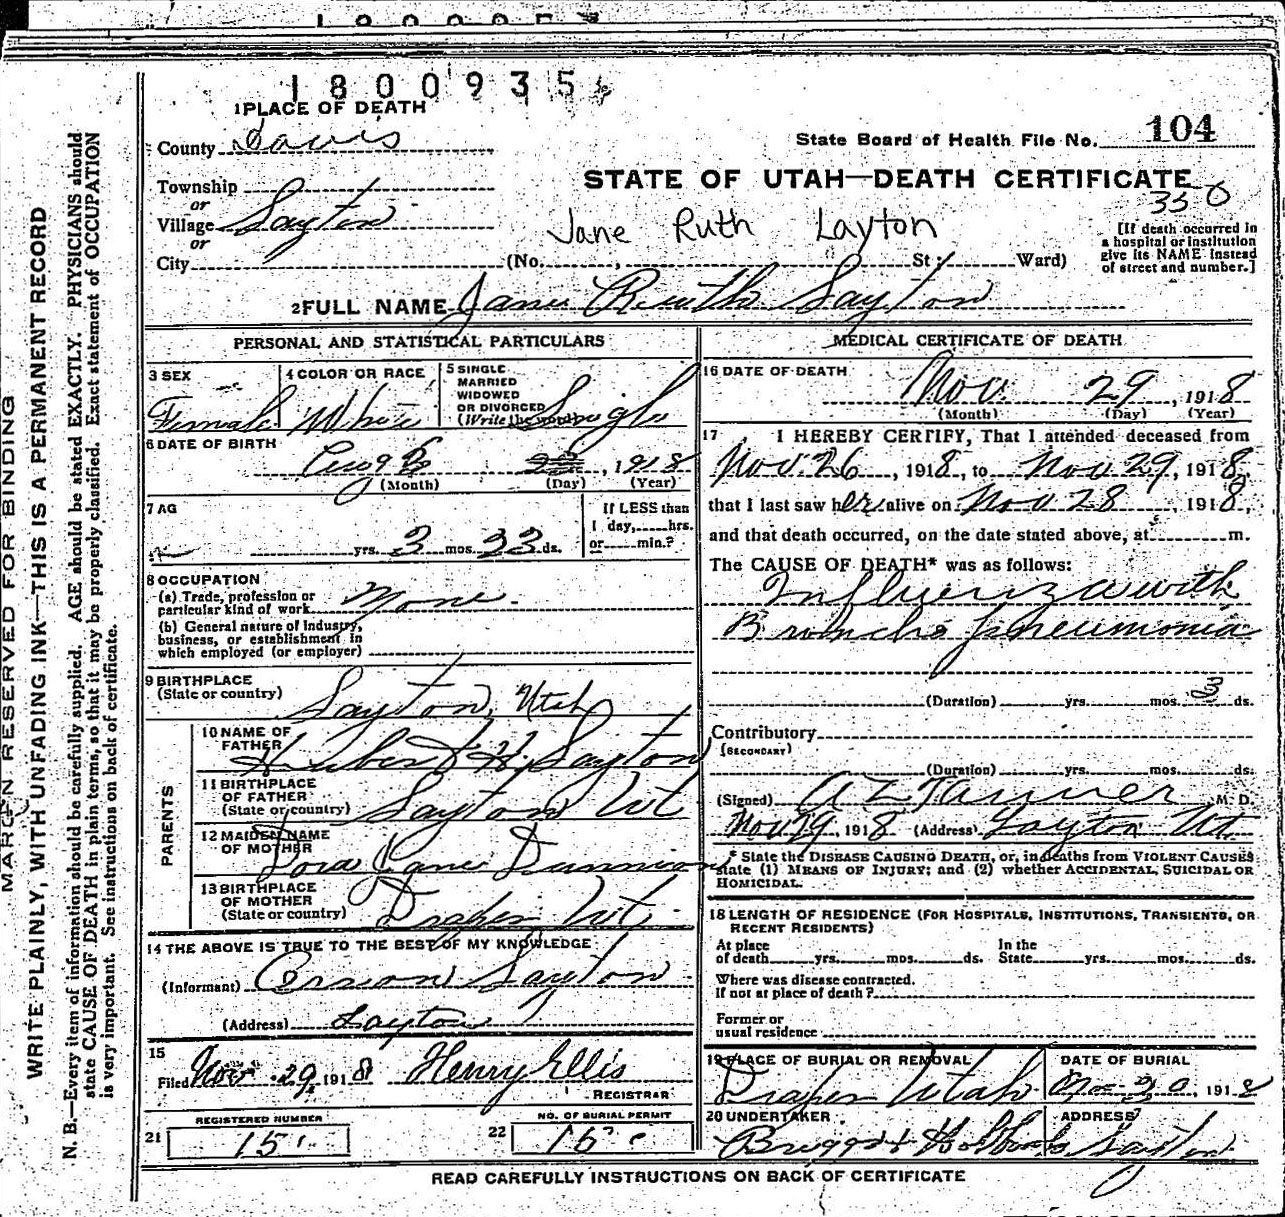 1800935
1 PLACE OF DEATH
State Board of Health File No. 104
County Davis
Township
STATE OF UTAH—DEATH CERTIFICATE
350
or
Village Layton
Jane Ruth Layton
or
City (No. , St; Ward)
[If death occurred in
a hospital or institution
give its NAME instead
of street and number.]
2 FULL NAME Jane Ruth Layton
PERSONAL AND STATISTICAL PARTICULARS
3 SEX
Female
4 COLOR OR RACE
White
5 SINGLE
MARRIED
WIDOWED
OR DIVORCED
(Write the word)
Single
6 DATE OF BIRTH
Aug 6 , 1918
(Month) (Day) (Year)
7 AG
yrs. 3 mos. 23 ds.
If LESS than
1 day, hrs.
or min.?
8 OCCUPATION
(a) Trade, profession or
particular kind of work None
(b) General nature of industry,
business, or establishment in
which employed (or employer)
9 BIRTHPLACE
(State or country) Layton, Utah
PARENTS
10 NAME OF
FATHER Hubert H. Layton
11 BIRTHPLACE
OF FATHER
(State or country) Layton Ut
12 MAIDEN NAME
OF MOTHER Dora Jane Dunnion
13 BIRTHPLACE
OF MOTHER
(State or country) Draper Ut.
14 THE ABOVE IS TRUE TO THE BEST OF MY KNOWLEDGE
(Informant) Layton
(Address) Layton
15
Filed Nov. 29, 1918 Henry Ellis
REGISTRAR
REGISTERED NUMBER
21 15
NO. OF BURIAL PERMIT
22 15
MEDICAL CERTIFICATE OF DEATH
16 DATE OF DEATH
Nov. 29 , 1918
(Month) (Day) (Year)
17 I HEREBY CERTIFY, That I attended deceased from
Nov. 26 , 1918, to Nov 29, 1918,
that I last saw her alive on Nov 28 , 1918,
and that death occurred, on the date stated above, at m.
The CAUSE OF DEATH* was as follows:
Influenza with
Broncho pneumonia
(Duration) yrs. mos. 3 ds.
Contributory
(SECONDARY)
(Duration) yrs. mos. ds.
(Signed) A Z Tanner M. D.
Nov 29, 1918 (Address) Layton Ut.
* State the DISEASE CAUSING DEATH, or, in deaths from VIOLENT CAUSES
state (1) MEANS OF INJURY; and (2) whether ACCIDENTAL, SUICIDAL OR
HOMICIDAL.
18 LENGTH OF RESIDENCE (FOR HOSPITALS, INSTITUTIONS, TRANSIENTS, OR
RECENT RESIDENTS)
At place
of death yrs. mos. ds.
In the
State yrs. mos. ds.
Where was disease contracted.
If not at place of death?
Former or
usual residence
19 PLACE OF BURIAL OR REMOVAL
Draper Utah
DATE OF BURIAL
30 , 1918
20 UNDERTAKER
Briggs & Holbrook
ADDRESS
Layton
READ CAREFULLY INSTRUCTIONS ON BACK OF CERTIFICATE
MARGIN RESERVED FOR BINDING
WRITE PLAINLY, WITH UNFADING INK—THIS IS A PERMANENT RECORD
N. B.—Every item of information should be carefully supplied. AGE should be stated EXACTLY. PHYSICIANS should
state CAUSE OF DEATH in plain terms, so that it may be properly classified. Exact statement of OCCUPATION
is very important. See instructions on back of certificate.